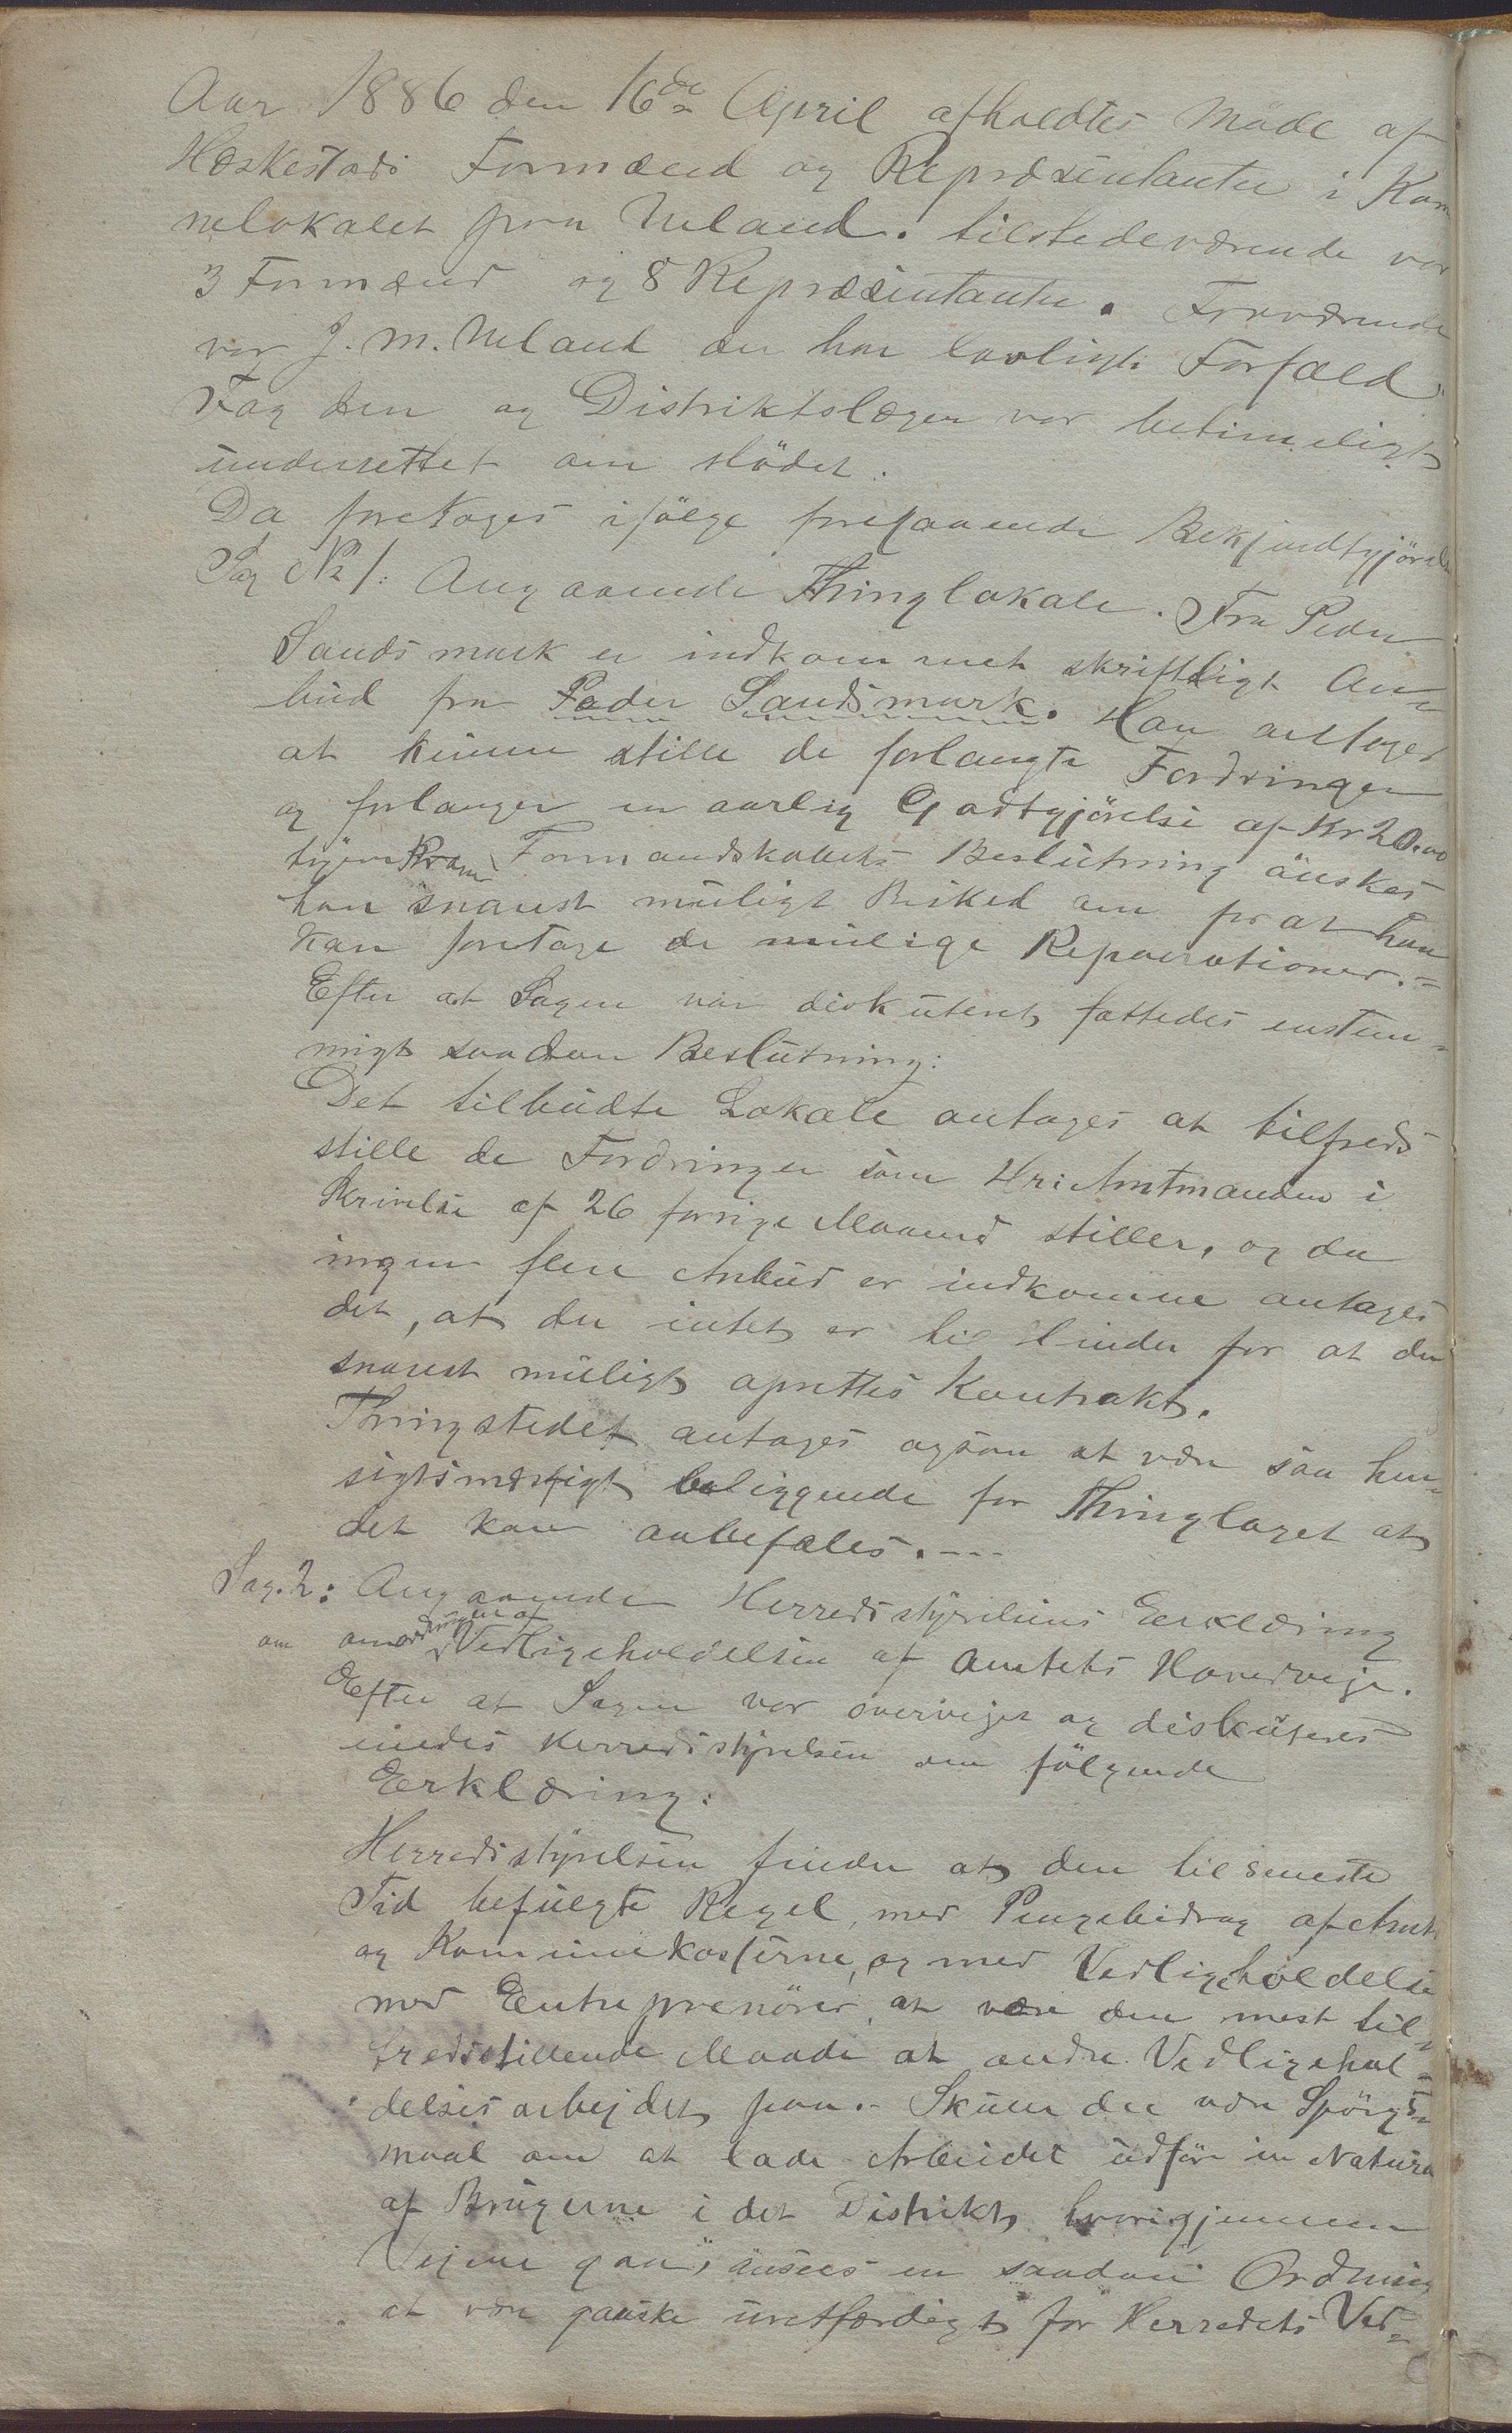 Aar 1886 den 16de April afholdtes Möde af
Heskestads Formænd og Repræsentanter i Kom
nelokalet paa Ueland. tilstedeværende var
3 Formænd og 8 Repræsentanter. Fraværende
var J. M. Ueland der har lovligt Forfald
Fogden og Distriktslægen var betimeligt
underrettet om Mödet.
Da foretoges ifölge foregaaende Bekjendtgjörelse
Sag No 1: Angaaende Thinglokale. Fra Peder
Sandsmark er indkommet skriftligt An-
bud fra Peder Sandsmark. Han antages
at kunne stille de forlangte Fordringer
og forlanger en aarlig Godtgjörelse af Kr 20.00
tyve Kroner Formandskabets Beslutning önskes
han snarest muligt Besked om for at han
kan foretage de mulige Reparationer.-
Efter at Sagen var diskuteret, fattedes enstem-
migt saadan Beslutning:
Det tilbudte Lokale antages at tilfreds
stille de Fordringer som Hr. Amtmanden i
Skrivelse af 26 forrige Maaned stiller, og da
ingen flere Anbud er indkomne antages
det, at der intet er til hinder for at der
snarest muligt oprettes Kontrakt.
Thingstedet antages ogsaa at være saa hen-
sigtsmæsigt beliggende for Thinglaget at
det kan anbefales. ---
Sag. 2: Angaaende Herredsstyrelsens Eerklæring
om Vedligeholdelsen af Amtets Hovedveje.
Efter at Sagen var overveiet og diskuteret
enedes Herredsstyrelsen om fölgende
Eerklæring:
Herredsstyrelsen finder at den til seneste
Tid befulgte Regel, med Pengebidrag af Amts
og Kommunekasserne, og med Vedligeholdelse
med Eentreprenörer, at være den mest til-
fredsstillende Maade at ordne Vedligehol-
delsesarbejdet paa.- Skulde der være Spörgs-
maal om at lade Arbeidet udföre in Natura
af Brugerne i det Distrikt, hvorigjennem
Vejene gaar, ansees en saadan Ordning
at være ganske uretfærdigt for Herredets Ved-